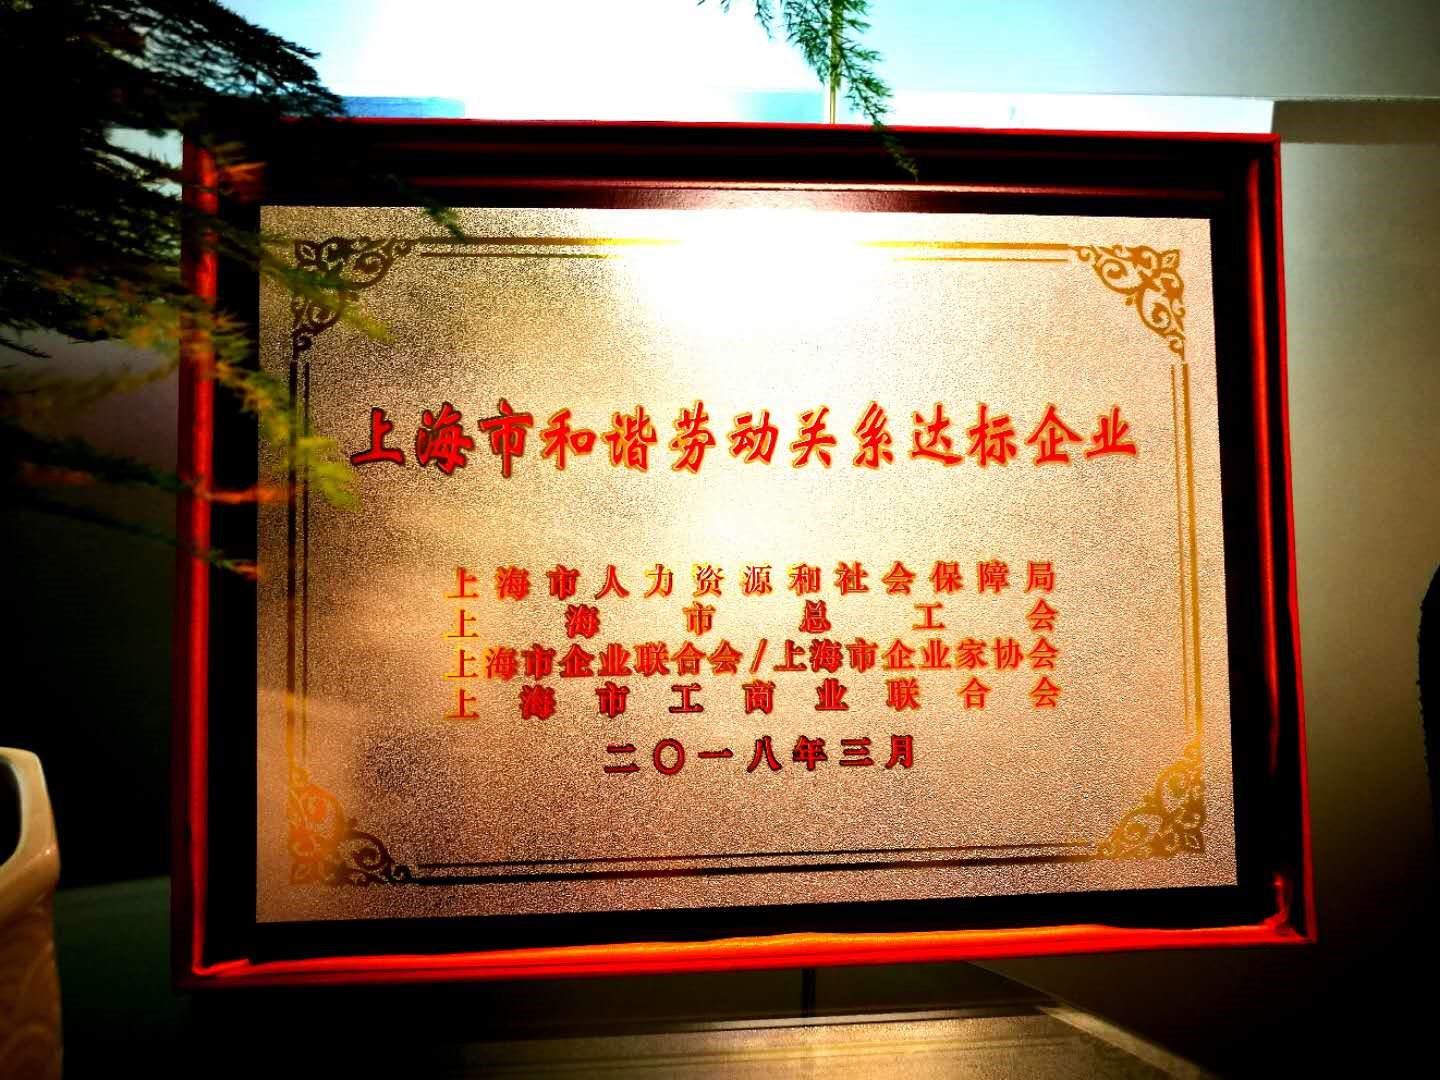 上海市和谐劳动关系达标企业
上海市人力资源和社会保障局
上海市总工会
上海市企业联合会/上海市企业家协会
上海市工商业联合会
二〇一八年三月